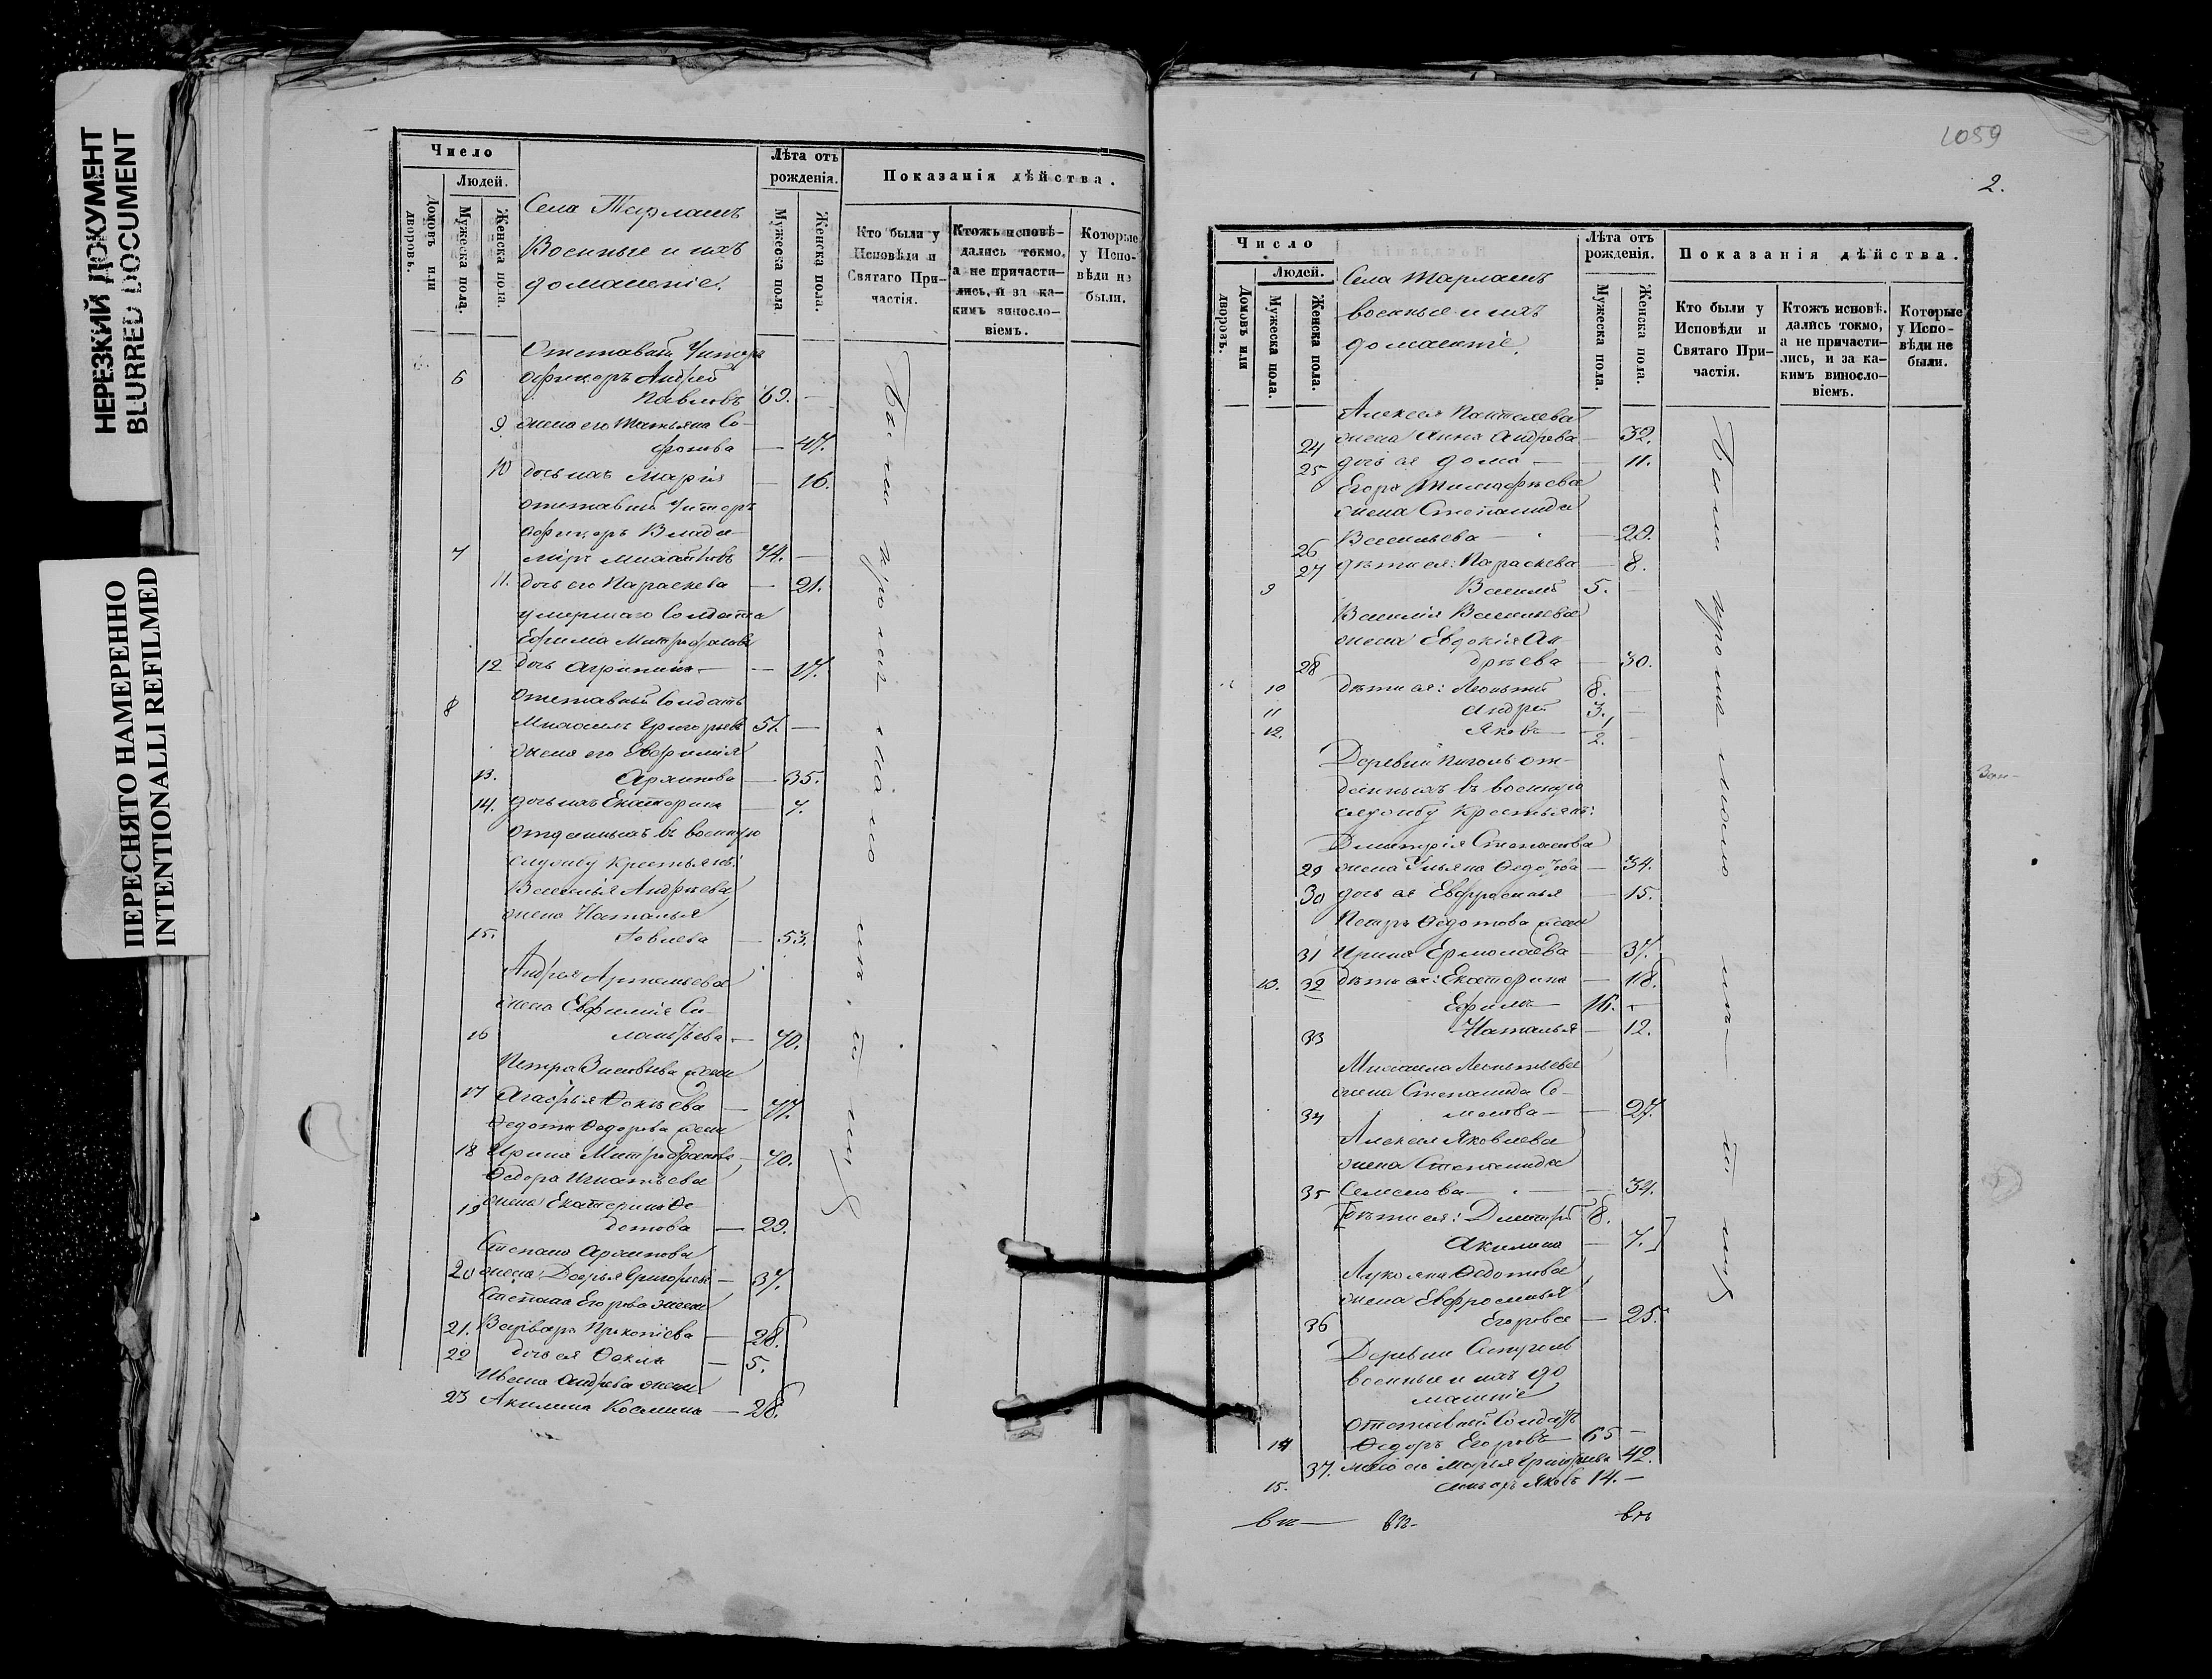 НЕРЕЗКИЙ ДОКУМЕНТ
BLURRED DOCUMENT
ПЕРЕСНЯТО НАМЕРЕННО
INTENTIONALLI REFILMED
Число
Людей.
Домовъ или дворовъ.
Мужеска пола.
Женска пола.
Села Тарлашъ
Военные и ихъ
домашніе.
Лѣта отъ рожденія.
Мужеска пола
Женска пола.
Показанія дѣйства.
Кто были у Исповѣди и Святаго Причастія.
Ктожъ исповѣдались токмо, а не причастились, и за какимъ винословіемъ.
Которые у Исповѣди не были.
Отставный Унтеръ
6 офицеръ Андрей
Павловъ 69. —
9. жена его Татьяна Со-
фонова — 47.
10 дочь ихъ Марія — 16.
отставный Унтеръ
офицеръ Влади-
7 міръ Михайловъ 74. —
11. дочь его Параскева — 21.
умершаго Солдата
Ефима Митрофанова
12 дочь — 17.
8 отставный Солдатъ
Михаилъ Григорьевъ 51. —
жена его Евфимія
13. Архипова — 35.
14. дочь ихъ Екатерина — 7.
отданныхъ въ военную
службу крестьянъ:
Василья Андреева
жена Наталья
15. Іовлева — 53.
Андрея Артемьева
жена Евфимія Си-
16 — 40.
Петра жена
17 Агафья — 47.
Федота Федорова жена
18 Ирина Митрофанова — 40.
Федора Игнатьева
19 жена Екатерина Фе-
дотова — 29.
Степана Архипова
20 жена Дарья Григорьева — 37.
Степана Егорова жена
21. Варвара Прокопіева — 28.
22 дочь ея Фекла — 5.
Ивана Андреева жена
23 Акилина Космина — 28.
Были
1059
2.
Число
Людей.
Домовъ или дворовъ.
Мужеска пола.
Женска пола.
Села Тарлашъ
военные и ихъ
домашніе.
Лѣта отъ рожденія.
Мужеска пола.
Женска пола.
Показанія дѣйства.
Кто были у Исповѣди и Святаго Причастія.
Ктожъ исповѣдались токмо, а не причастились, и за какимъ винословіемъ.
Которые у Исповѣди не были.
Алексея Пантелева
24 жена Анна Андрева — 32.
25 дочь ея — 11.
Егора Тимофеева
жена Степанида
26 Васильева — 29.
27 дѣти ея: Параскева — 8.
9 Василій 5. —
Василія Васильева
жена Евдокія Ан-
28 дреева — 30.
10 дѣти ея: Леонтій 8. —
11 Андрей 3. —
12. Яковъ 1/2. —
Деревни от-
данныхъ въ военную
службу крестьянъ:
Дмитрія Степанова
29 жена Ульяна Федорова — 34.
30 дочь ея Евфросинья — 15.
Петра Федотова жена
31 Ирина Ермолаева — 37.
13. 32 дѣти ея: Екатерина — 18.
Ефимъ 16. —
33 Наталья — 12.
Михаила Леонтьева
жена Степанида Се-
34 менова — 27.
Алексея Яковлева
жена Степанида
35 Семенова — 34.
[дѣти ея: Дмитрій 8.
Акилина — 7.]
Лукояна Федотова
жена Евфросинья
36 Егорова — 25.
Деревни
военные и ихъ до
машніе
отставный Солдатъ
14 Федоръ Егоровъ 65 —
37. жена его Марья Григорьева 42.
15. сынъ ихъ Яковъ 14. —
Были кроме